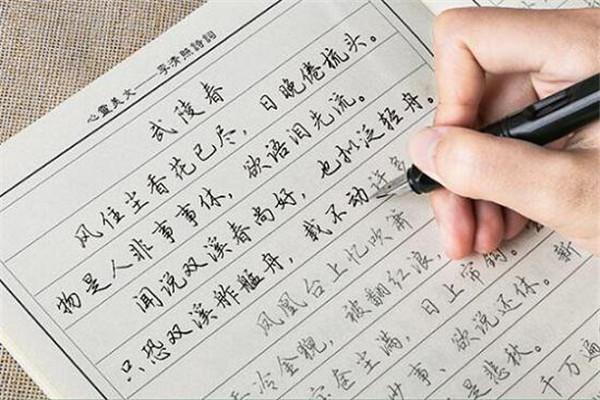 心靈美文——李清照詩詞
武陵春
风住尘香花已尽，日晚倦梳头。
物是人非事事休，欲语泪先流。
闻说双溪春尚好，也拟泛轻舟。
只恐双溪舴艋舟，载不动许多
凤凰台上忆吹箫
冷金猊，被翻红浪，
奁尘满，日上帘钩。
事、欲说还休。新
是悲秋。
千万遍